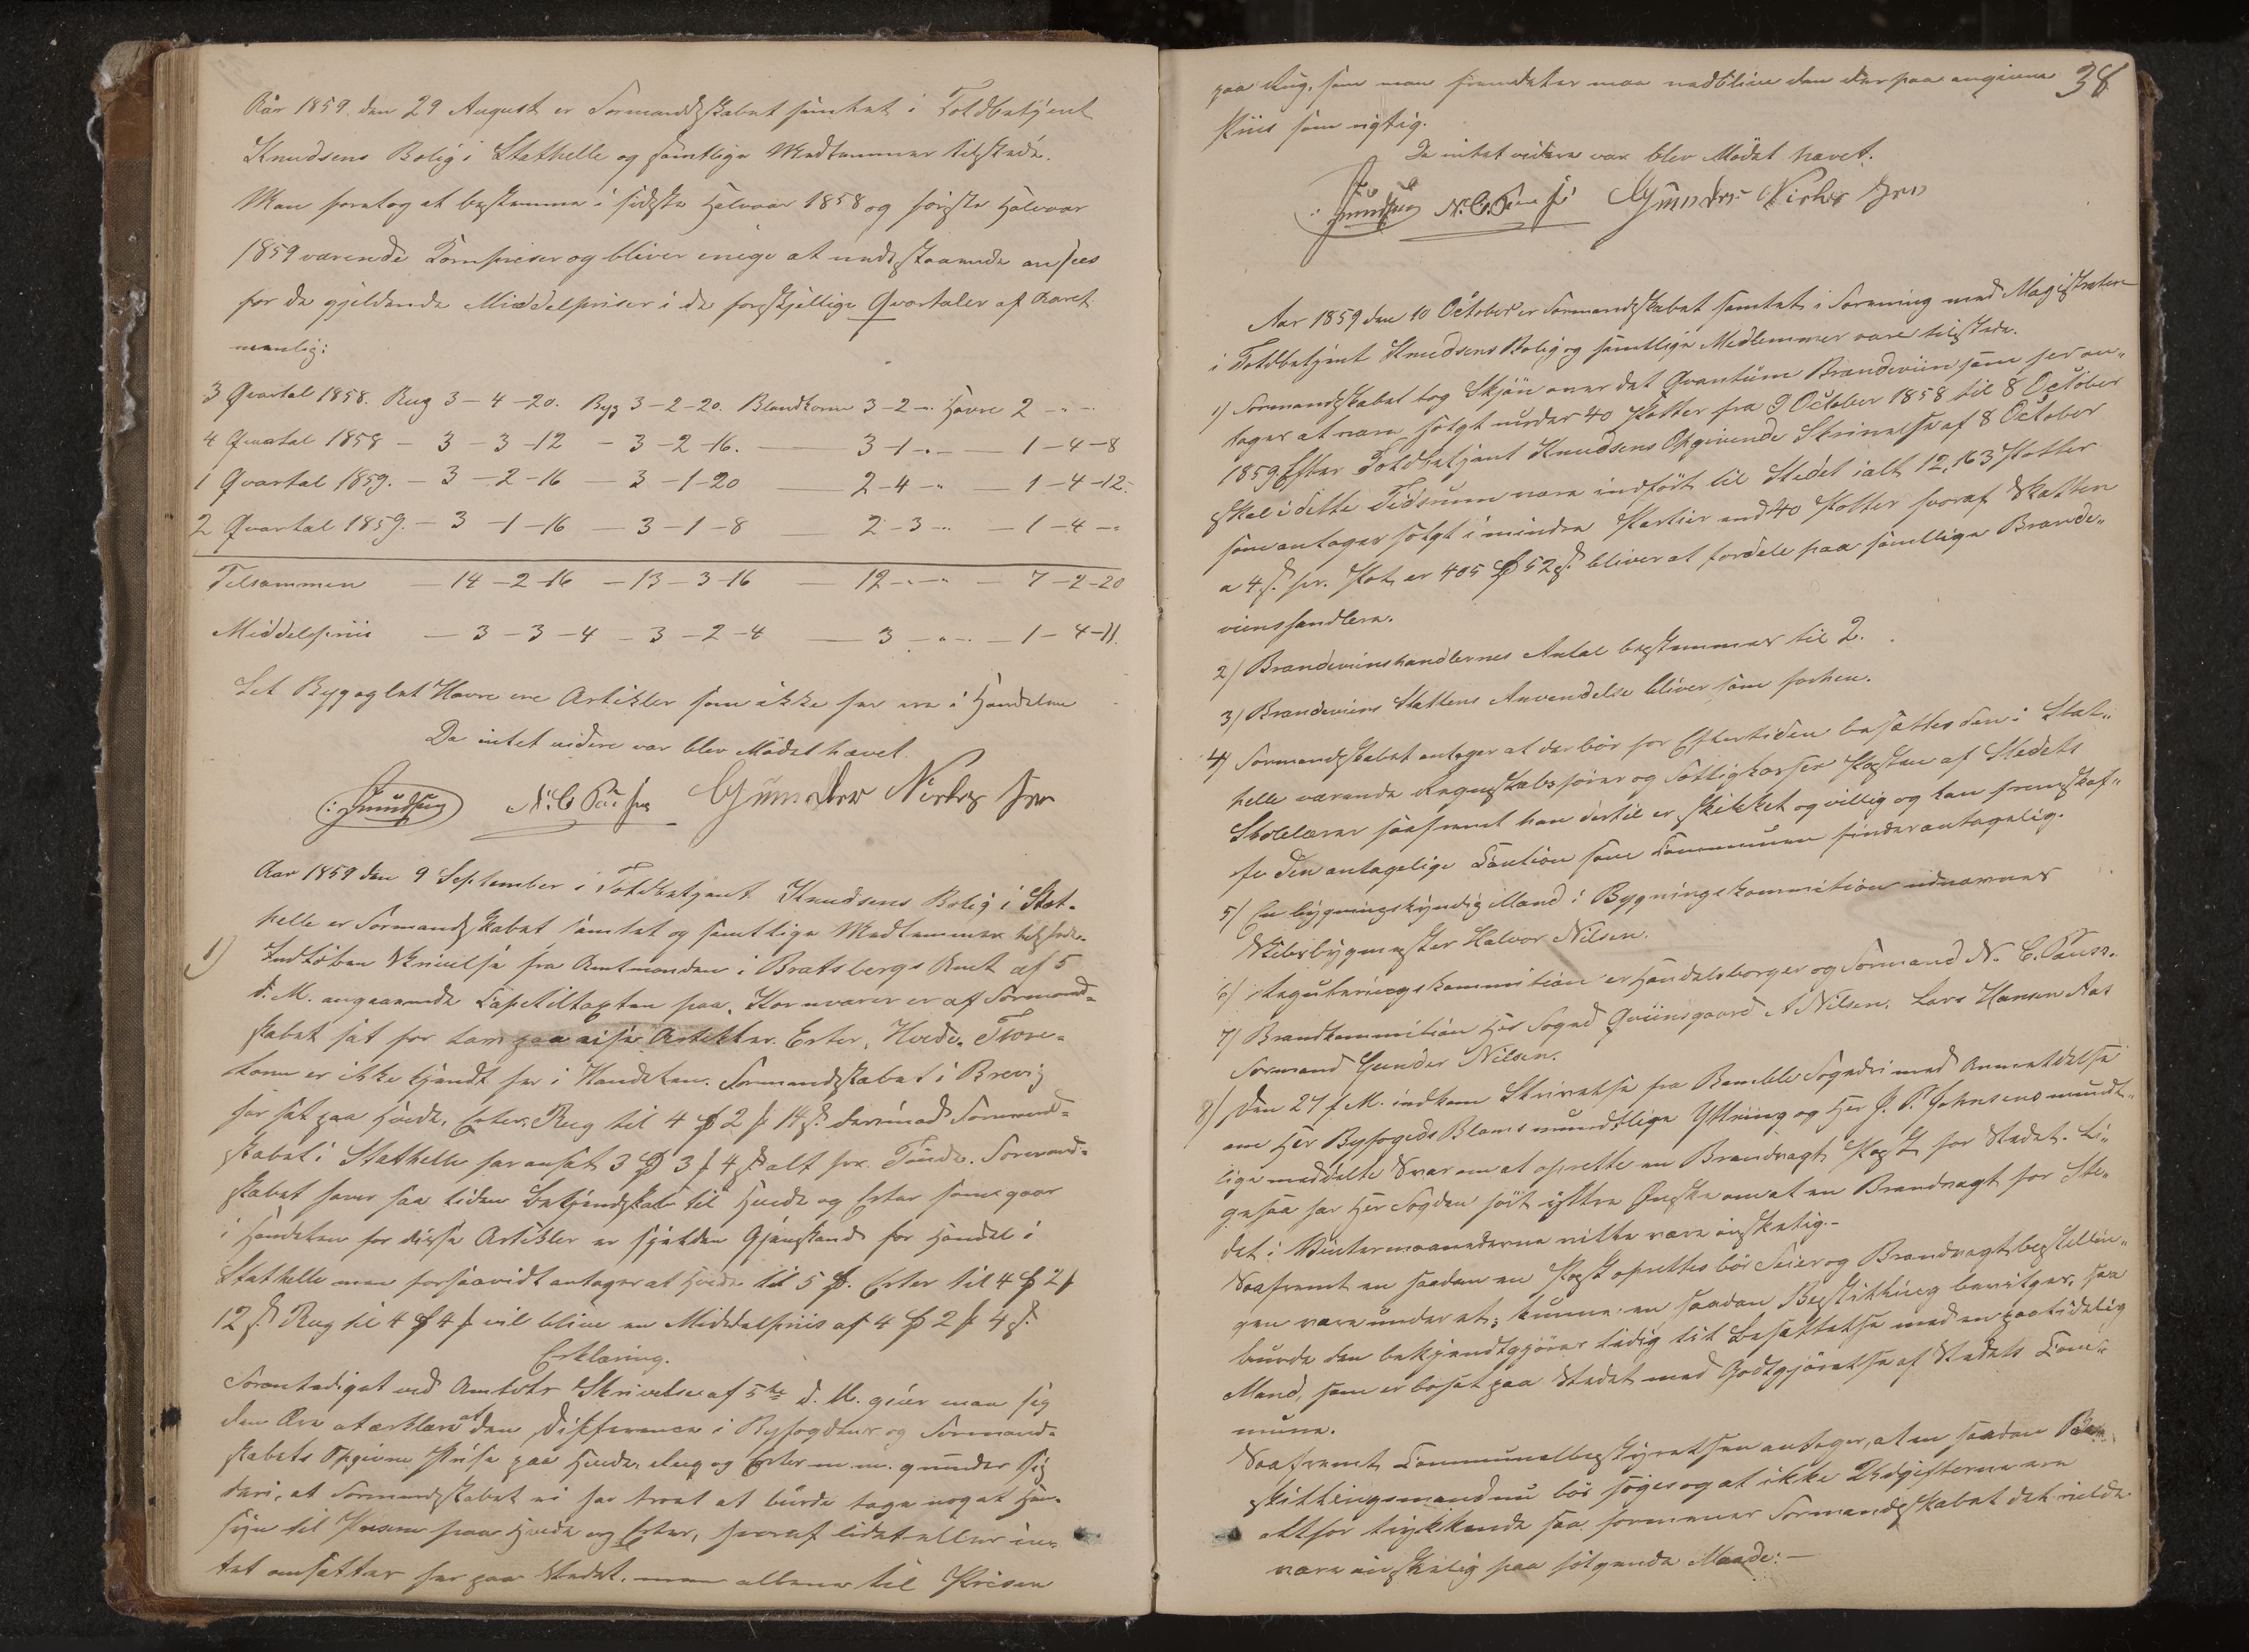 Aar 1859 den 29 August er Formandskabet samlet i Toldbetjent
Knudsens Bolig i Stathelle og samtlige Medlemmer tilstede.
Man foretog at bestemme i sidste Halvaar 1858 og første Halvaar
1859 værende Kornpriser og bliver enige at nedstaaende ansees
for de gjeldende Middelpriser i de forskjellige Qvartaler af Aaret
nemlig:
3 Qvartal 1858. Rug 3-4-20. Byg 3-2-20. Blandkorn 3-2-" Havre 2-"-"
4 Qvartal 1858 - 3-3-12 - 3-2-16. — 3-1-" — 1-4-8
1 Qvartal 1859. - 3-2-16 - 3-1-20 — 2-4-" — 1-4-12.
2 Qvartal 1859. - 3-1-16 - 3-1-8 — 2-3-" — 1-4-"
Tilsammen — 14-2-16 - 13-3-16 12-"-" — 7-2-20
Middelpriis — 3-3-4 - 3-2-4 — 3-"-" — 1-4-11.
Let Byg og let Havre ere Artikler som ikke her ere i Handelen
Da intet videre var blev Mødet hævet.
Knudsen N. C. Paus Gunder Nielsen
Aar 1859 den 9 September i Toldbetjent Knudsens Bolig i Stat-
helle er Formandskabet samlet og samtlige Medlemmer tilstede.
1) Indløben Skrivelse fra Amtmanden i Bratsbergs Amt af 5
d. M. angaaende Capitelstaxten paa Kornvarer er af Formand-
skabet sat for lav paa disse Artikler. Erter, Hvede,
korn er ikke kjendt her i Handelen. Formandskabet i Brevig
har sat paa Hvede, Erter, Rug til 4 $ 2 f 14 s. derimod Formand-
skabet i Stathelle har ansat 3 $ 3 f 4 s alt pr. Tønde. Formand-
skabet haver saa liden Bekjendskab til Hvede og Erter som gaar
i Handelen for disse Artikler er sjelden Gjenstand for Handel i
Stathelle men forsaavidt antager at Hvede til 5 $. Erter til 4 $ 2 f
12 s Rug til 4 $ 4 f vil blive en Middelpriis af 4 $ 2 f 4 s.
Erklæring.
Foranlediget ved Amtets Skrivelse af 5te d. M. giver man sig
den Ære at erklære at den Difference i Byfogdens og Formand-
skabets Opgivne Priise paa Hvede, Rug og Erter m. m. grunder sig
deri, at Formandskabet ei har troet at burde tage noget Hen-
syn til Prisen paa Hvede og Erter, hvoraf lidet eller in-
tet omsættes her paa Stedet, men allene til Prisen
38
paa Rug, som man fremdeles maa vedblive den derpaa angivne
Priis som rigtig.
Da intet videre var blev Mødet hævet.
Knudsen N. C. Paus Gunder Nielsen
Aar 1859 den 10 October er Formandskabet samlet i Forening med Magistraten
i Toldbetjent Knudsens Bolig og samtlige Medlemmer vare tilstede.
1) Formandskabet tog Skjøn over det Qvantum Brændeviin som her an-
tages at være solgt under 40 Potter fra 9 October 1858 til 8 October
1859. Efter Toldbetjent Knudsens Opgivende Skrivelse af 8 October
skal i dette Tidsrum være indført til Stedet ialt 12,163 Potter
som antages solgt i mindre Partier end 40 Potter hvoraf Skatten
a 4 s. pr. Pot er 405 $ 52 s. bliver at fordele paa samtlige Brænde-
viinshandlere.
2) Brændeviinshandlernes Antal bestemmes til 2.
3) Brændeviins Skattens Anvendelse bliver som forhen.
4) Formandskabet antager at der bør for Eftertiden besættes den i Stat-
helle værende Regnskabsfører og Fattigkasser Posten af Stedets
Skolelærer saafremt han dertil er skikket og villig og kan fremskaf-
fe den antagelige Caution som Communen finder antagelig.
5) En bygningskyndig Mand i Bygningskommition udnævnes
Skibsbygmester Halvor Nilsen.
6) Reguleringskommition er Handelsborger og Formand N. C. Pauss.
7) Brandkommition Her Foged Qviinsgaard A Nilsen. Lars Hansen Aas
Formand Gunder Nilsen.
8) Den 27 f. M. indkom Skrivelse fra Bamble Fogderi med Anmeldelse
om Her Byfogeds Bloms mundtlige Yttring og Her J. P. Johnsens mundt-
lige meddelte Svar om at oprette en Brandvagt Post for Stedet. Li-
gesaa har Her Fogden sidst yttre Ønske om at en Brandvagt for Ste-
det i Vintermaanederne vilde være ønskelig.-
Saafremt en saadan en Post oprettes bør Feier og Brandvagtbestillin-
gen være under et, kunne en saadan Bestilling bevilges, saa
burde den bekjendtgjøres tidig til Besættelse med en paalidelig
Mand, som er bosat paa Stedet med Godtgjørelse af Stedets Com-
mune.
Saafremt Communalbestyrelsen antager, at en saadan Be-
stillingsmand nu bør søges og at ikke Udgifterne ere
altfor trykkende saa formener Formandskabet det vilde
være ønskelig paa følgende Maade:—